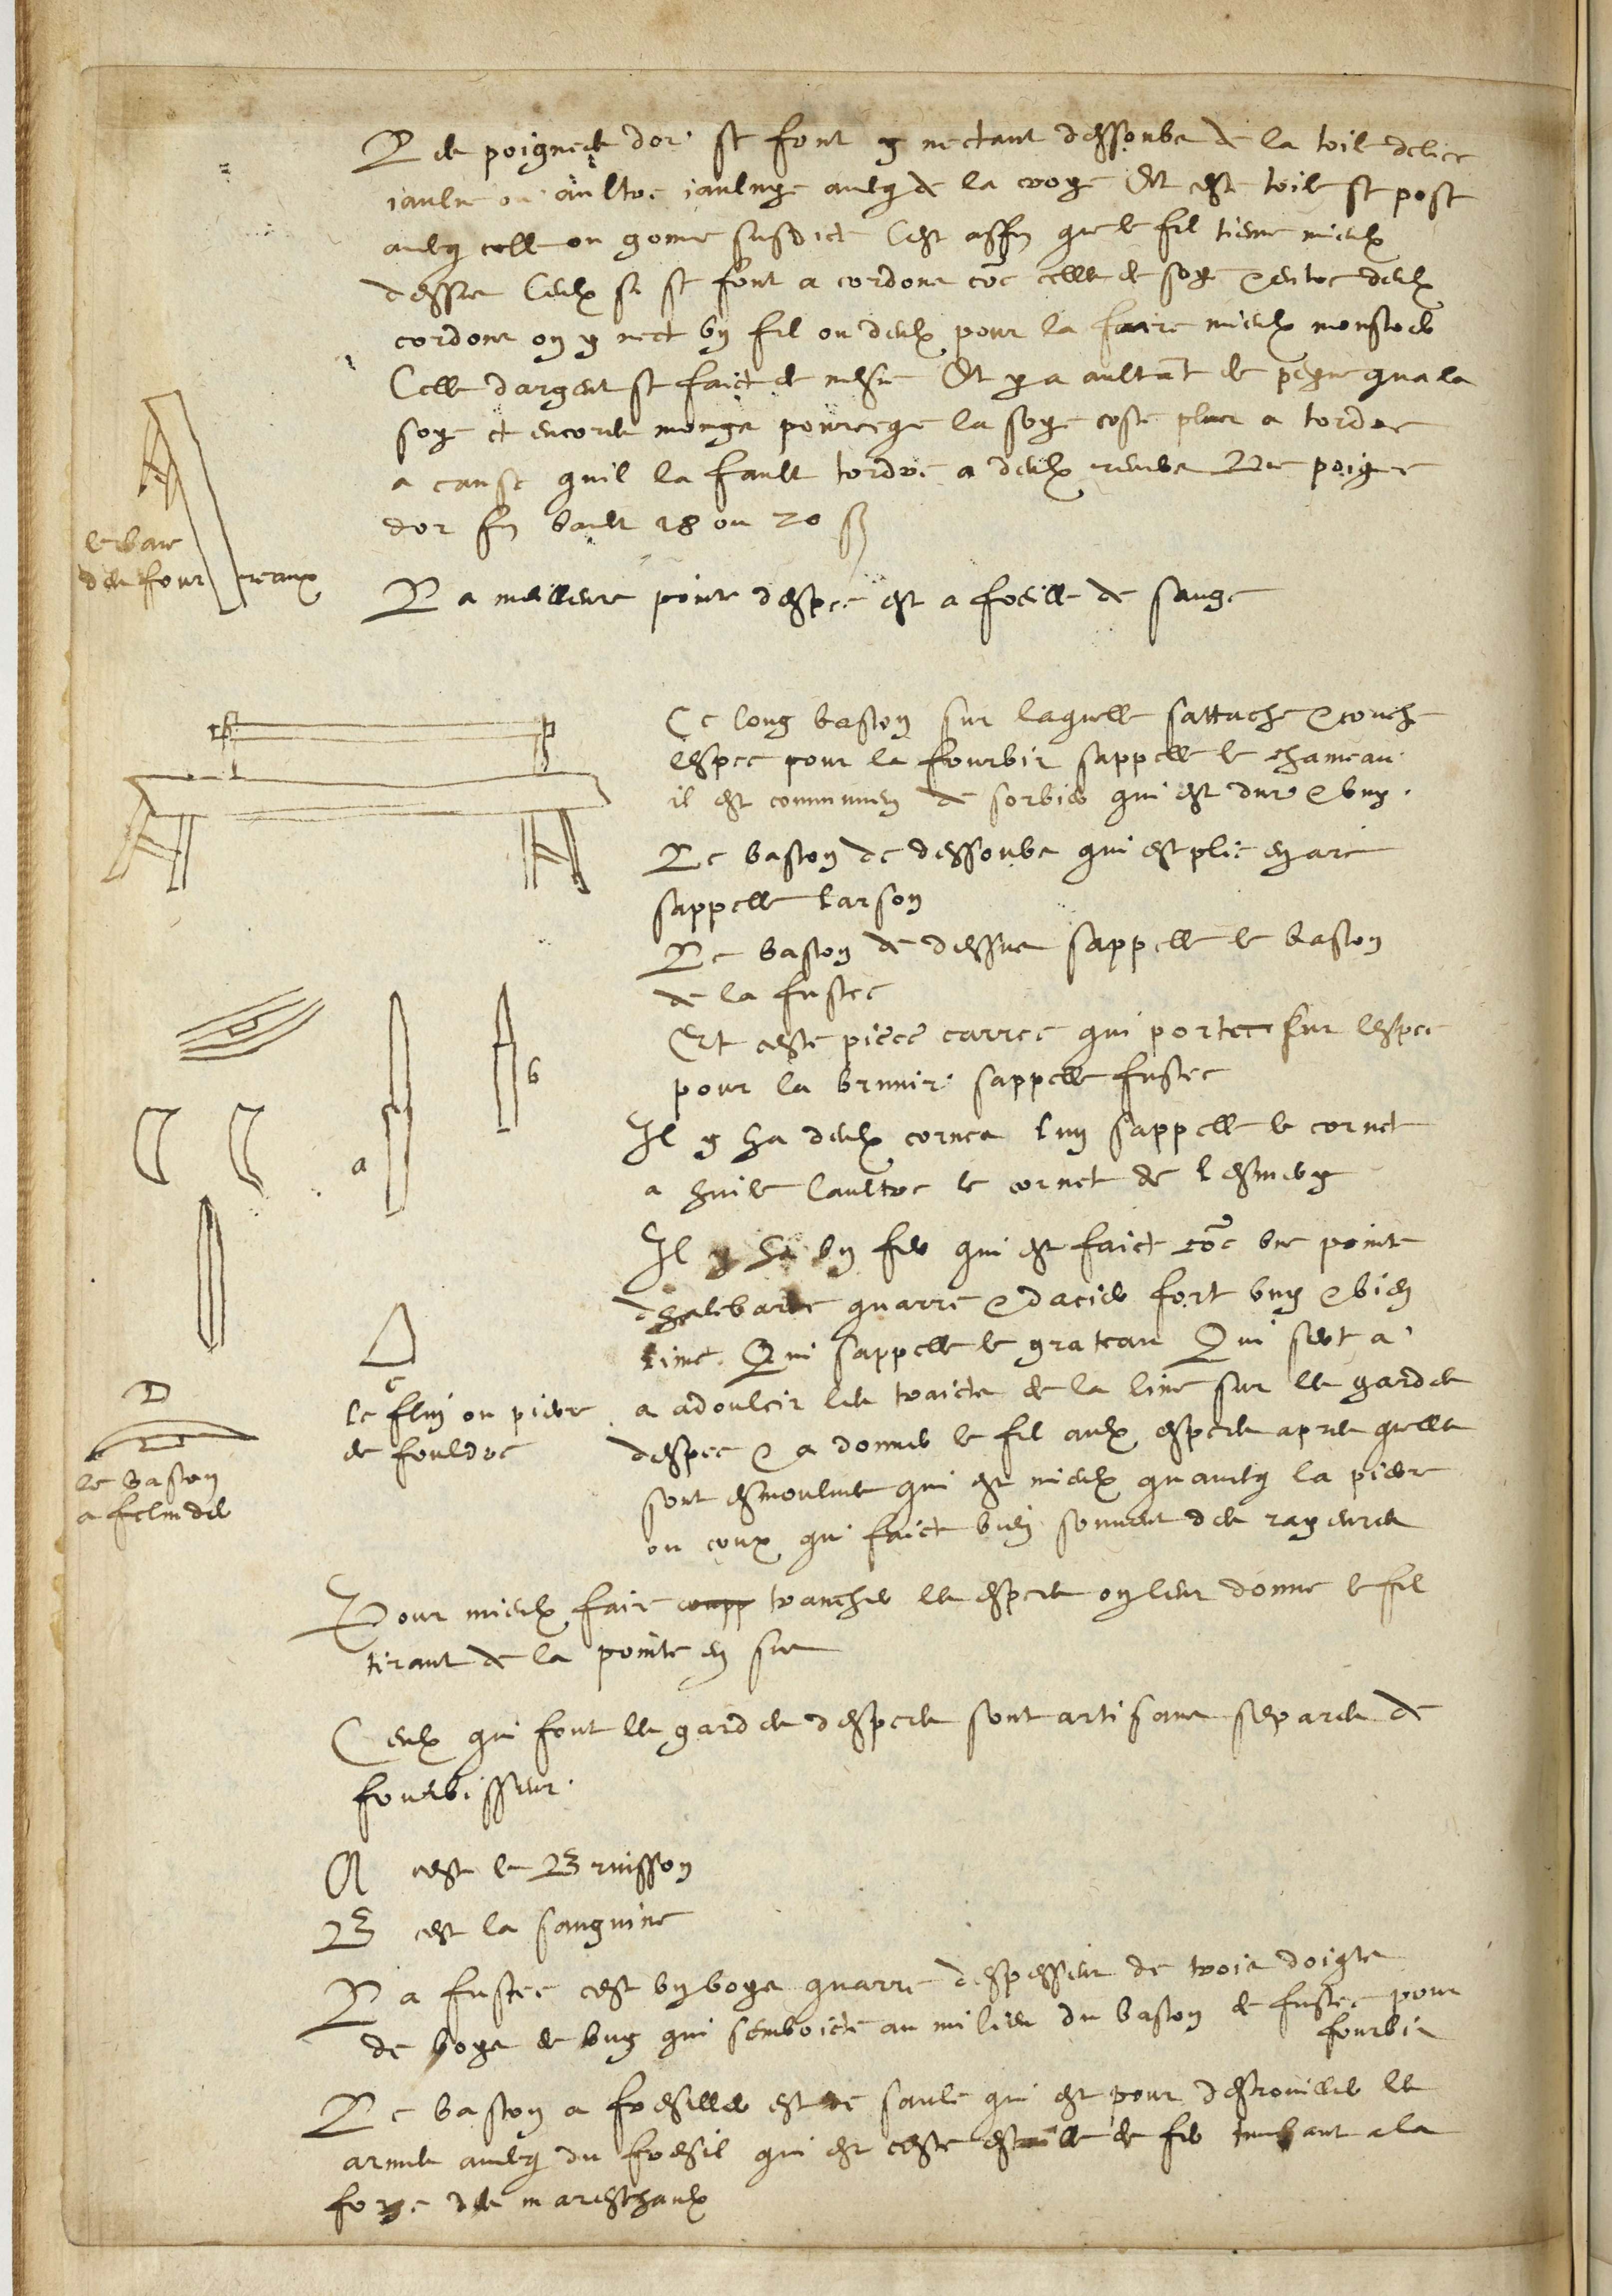 Les poignees dor se font y mectant dessoubs de la toile deliee
iaulne ou aultre iaulnye avecq de la croye Et ceste toile se pose
avecq colle ou gome susdicte Cest affin que le fil tienne mieulx
dessus Ceulx cy se font a cordons coe celles de soye & entre deulx
cordons on y mect un fil ou deulx pour la faire mieulx monstrer
Celle dargent se faict de mesme Et y a aultant de peyne qua la
soye et encores moings pourceque la soye coste plus a tordre
a cause quil la fault tordre a deulx reveers Une poignee
dor fin vault 18 ou 20 s
le banc
des four reaux
La meilleure poincte despee est a foeille de sauge
Ce long baston sur laquelle sattache & couche
lespee pour la fourbir sappelle le chameau
il est communem de sorbier qui est dur & uny
Le baston de dessoubs qui est plie en arc
sappelle larson
Le baston de dessus sappelle le baston
de la fustee
Et ceste piece carree qui porte sur lespee
pour la brunir sappelle fustee
Il y ha deulx cornes lun sappelle le cornet
a huile laultre le cornet de lesmery
b
a
Il y ha un fer qui est faict coe une pointe
dhalebarde quarre & dacier fort uny & bien
lime Qui sappelle le grateau Qui sert a
a adoulcir les traicts de la lime sur les gardes
despee & a donner le fil aulx espees apres quelles
sont esmoulues qui est mieulx quavecq la pierre
ou coux qui faict bien souvent des rayeures
c
le flin ou pierre
de fouldre
D
le baston
a felindes
Pour mieulx faire coupp trancher les espees on leur donne le fil
tirant de la pointe en sus
Ceulx qui font les gardes despees sont artisans separes de
fourbisseur
A cest le Brnisson
B cest la sanguine
La fustee cest un boys quarre despesseur de trois doigts
de boys de buy qui semboicte au milieu du baston de fustee pour
fourbir
Le baston a froesiller est de saule qui est pour desrouiller les
armes avecq du froesil qui est ceste escaille de fer tumbant a la
forge des mareschaulx